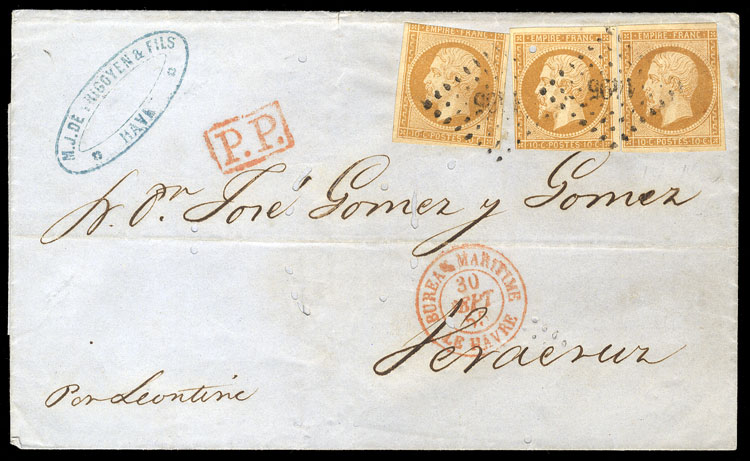 M.J. DE YRIGOYEN & FILS
HAVRE
P.P.
EMPIRE FRANC
10 C. POSTES 10 C.
EMPIRE FRANC
10 C. POSTES 10 C.
EMPIRE FRANC
10 C. POSTES 10 C.
1495
Sr. Dn. José Gomez y Gomez
BUREAU MARITIME
30
SEPT
LE HAVRE
Veracruz
Por Leontine